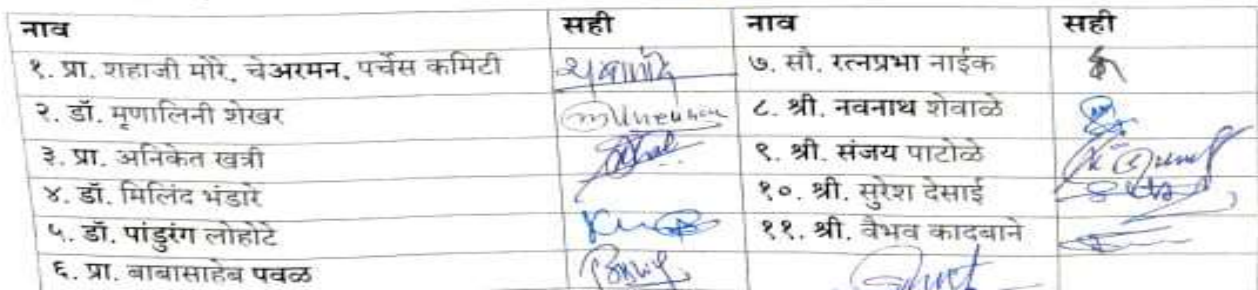 नाव सही नाव सही
१. प्रा. शहाजी मोरे, चेअरमन, पर्चेस कमिटी ७. सौ. रत्नप्रभा नाईक
२. डॉ. मृणालिनी शेखर ८. श्री. नवनाथ शेवाळे
३. प्रा. अनिकेत खत्री ९. श्री. संजय पाटोळे
४. डॉ. मिलिंद भंडारे १०. श्री. सुरेश देसाई
५. डॉ. पांडुरंग लोहोटे ११. श्री. वैभव कादबाने
६. प्रा. बाबासाहेब पवळ